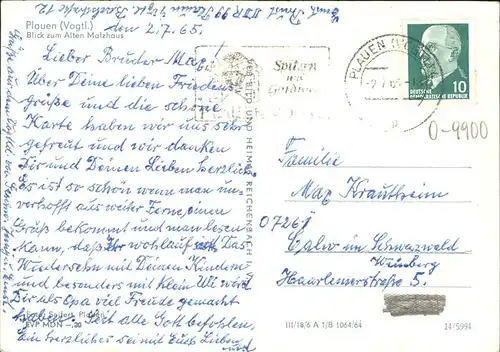 Plauen (Vogtl.)
Blick zum Alten Malzhaus
den 2.7.65.
Lieber Bruder Max!
Über Deine lieben Friedens-
grüße und die schöne
Karte haben wir uns sehr
gefreut und wir danken
Dir und Deinen Lieben herzlich.
Es ist so schön wenn man un-
verhofft aus weiter Ferne, einen
Gruß bekommt und man lesen
kann, daß Ihr wohlauf seid. Das
Wiedersehn mit Deinen Kindern
und besonders mit klein Uli wird
Dir als Opa viel Freude gemacht
haben. Seit alle Gott befohlen,
Ein herzliches sei mit Euch Lieben
und
EVP MDN -,20
BILD UND HEIMAT REICHENBACH
Plauener
Spitzen
und
Gardinen
PLAUEN (VOGTL)
DEUTSCHE
DEMOKRATISCHE REPUBLIK
10
O-9900
Familie
Max Krautheim
07261
Calw im Schwarzwald
Württbg
Haarlemerstraße 5.
III/18/6 A 1/B 1064/64
14/5994